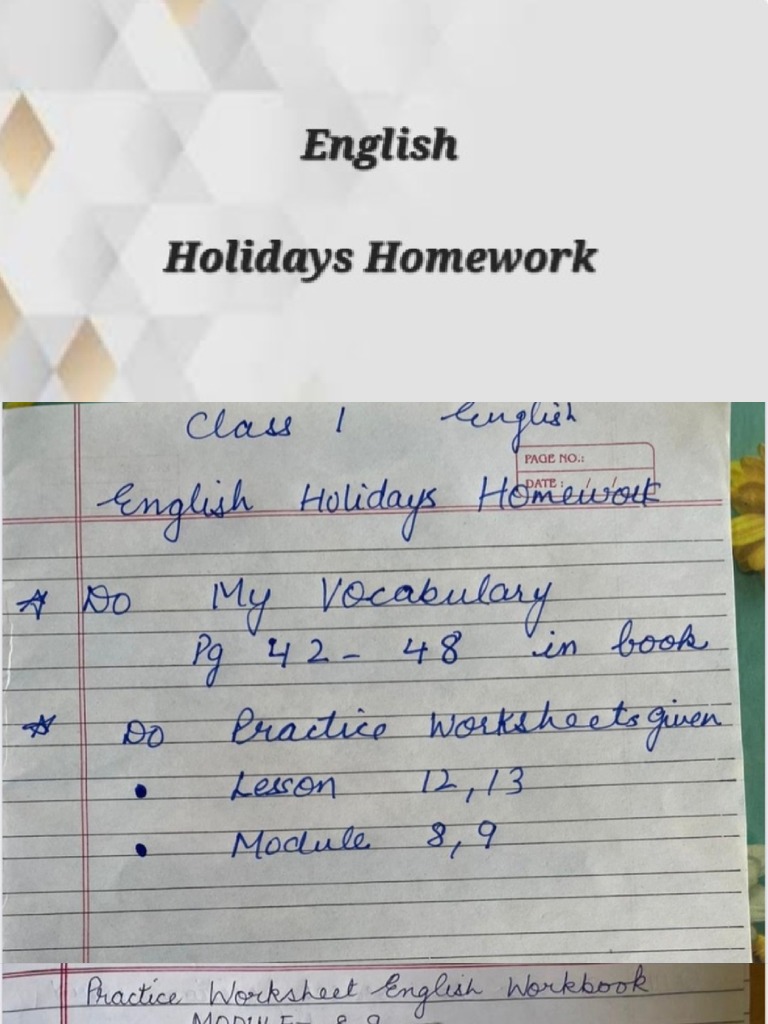 English
Holidays Homework
Class 1 English
PAGE NO.:
DATE: / /
English Holidays Homework
☆ Do My Vocabulary
Pg 42- 48 in book
☆ Do Practice Worksheets given
• Lesson 12,13
• Module 8,9
Practice Worksheet English Workbook
MODULE- 8,9